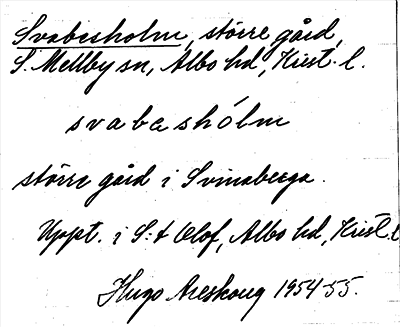 Svabesholm, större gård,
S. Mellby sn, Albo hd, Krist. l.
svabeshólm
större gård i Svinaberga.
Uppt. i S:t Olof, Albo hd, Krist. l
Hugo Areskoug 1954-55.